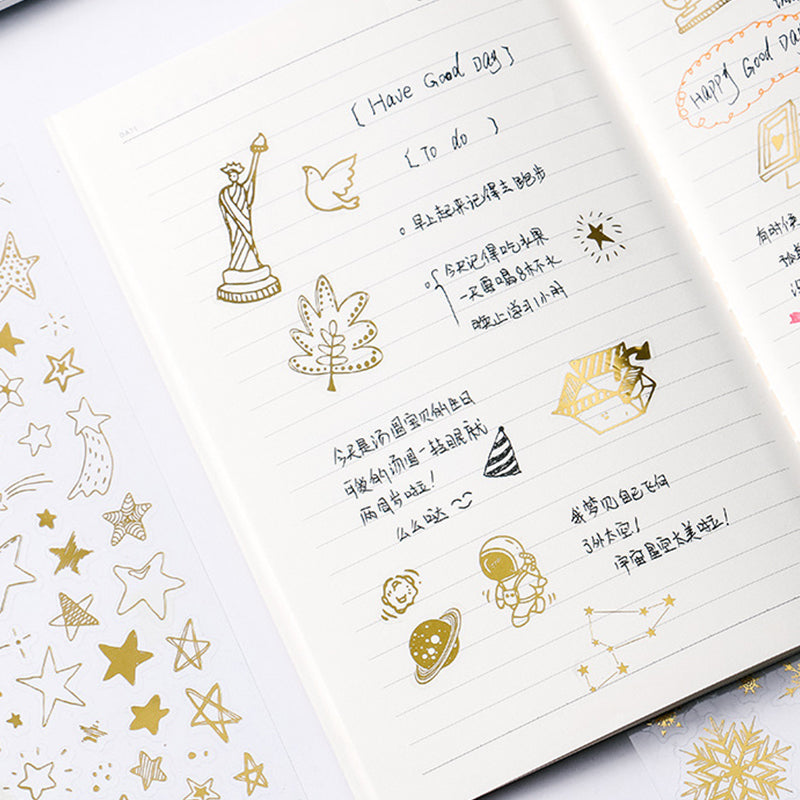 DATE
[Have Good Day]
[To do]
早上起来记得去跑步
今天记得吃水果
一天要喝8杯水
晚上学习1小时
今天是汤圆宝贝的生日
可爱的汤圆一转眼就
两周岁啦!
么么哒
我梦见自己飞向
了外太空!
宇宙星空太美啦!
Happy Good Day
有时候